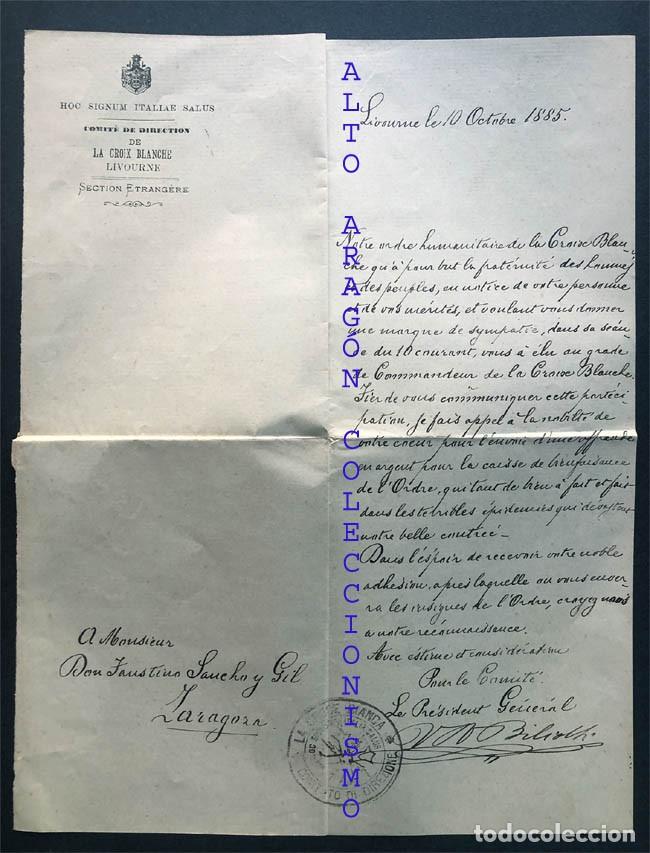 HOC SIGNUM ITALIAE SALUS
COMITÉ DE DIRECTION
DE
LA CROIX BLANCHE
LIVOURNE
SECTION ETRANGÈRE
Livourne le 10 Octobre 1885.
Notre ordre humanitaire de la Croix Blan
che qu'à pour but la fraternité des hommes
et des peuples, eu notice de votre personne
et de vos mérites, et voulant vous donner
une marque de sympatie, dans sa séan
ce du 10 courant, vous à élu au grade
de Commandeur de la Croix Blanche.
Fier de vous communiquer cette parteci
pation, je fais appel à la nobilté de
votre coeur pour l'envoi d'une offrande
en argent pour la caisse de bienfaisance
de l'Ordre, qui tant de bien à fait et fait
dans les terribles épidemies qui dévastent
notre belle contrée —
Dans l'éspoir de recevoir votre noble
adhésion, apres laquelle on vous enver
ra les insignes de l'Ordre, croyez nous
a notre reconnaissance.
Avec éstime et considération
Pour le Comité.
Le Président Général
A Monsieur
Don Faustino Sancho y Gil
Zaragoza
LA CROCE BIANCA
COMITATO DI DIREZIONE
ALTO ARAGON COLECCIONISMO
todocoleccion